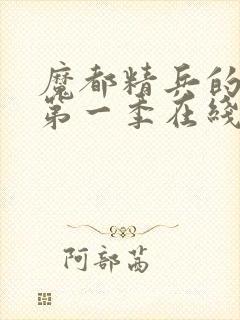 魔都精兵的
第一季在线
阿部茜